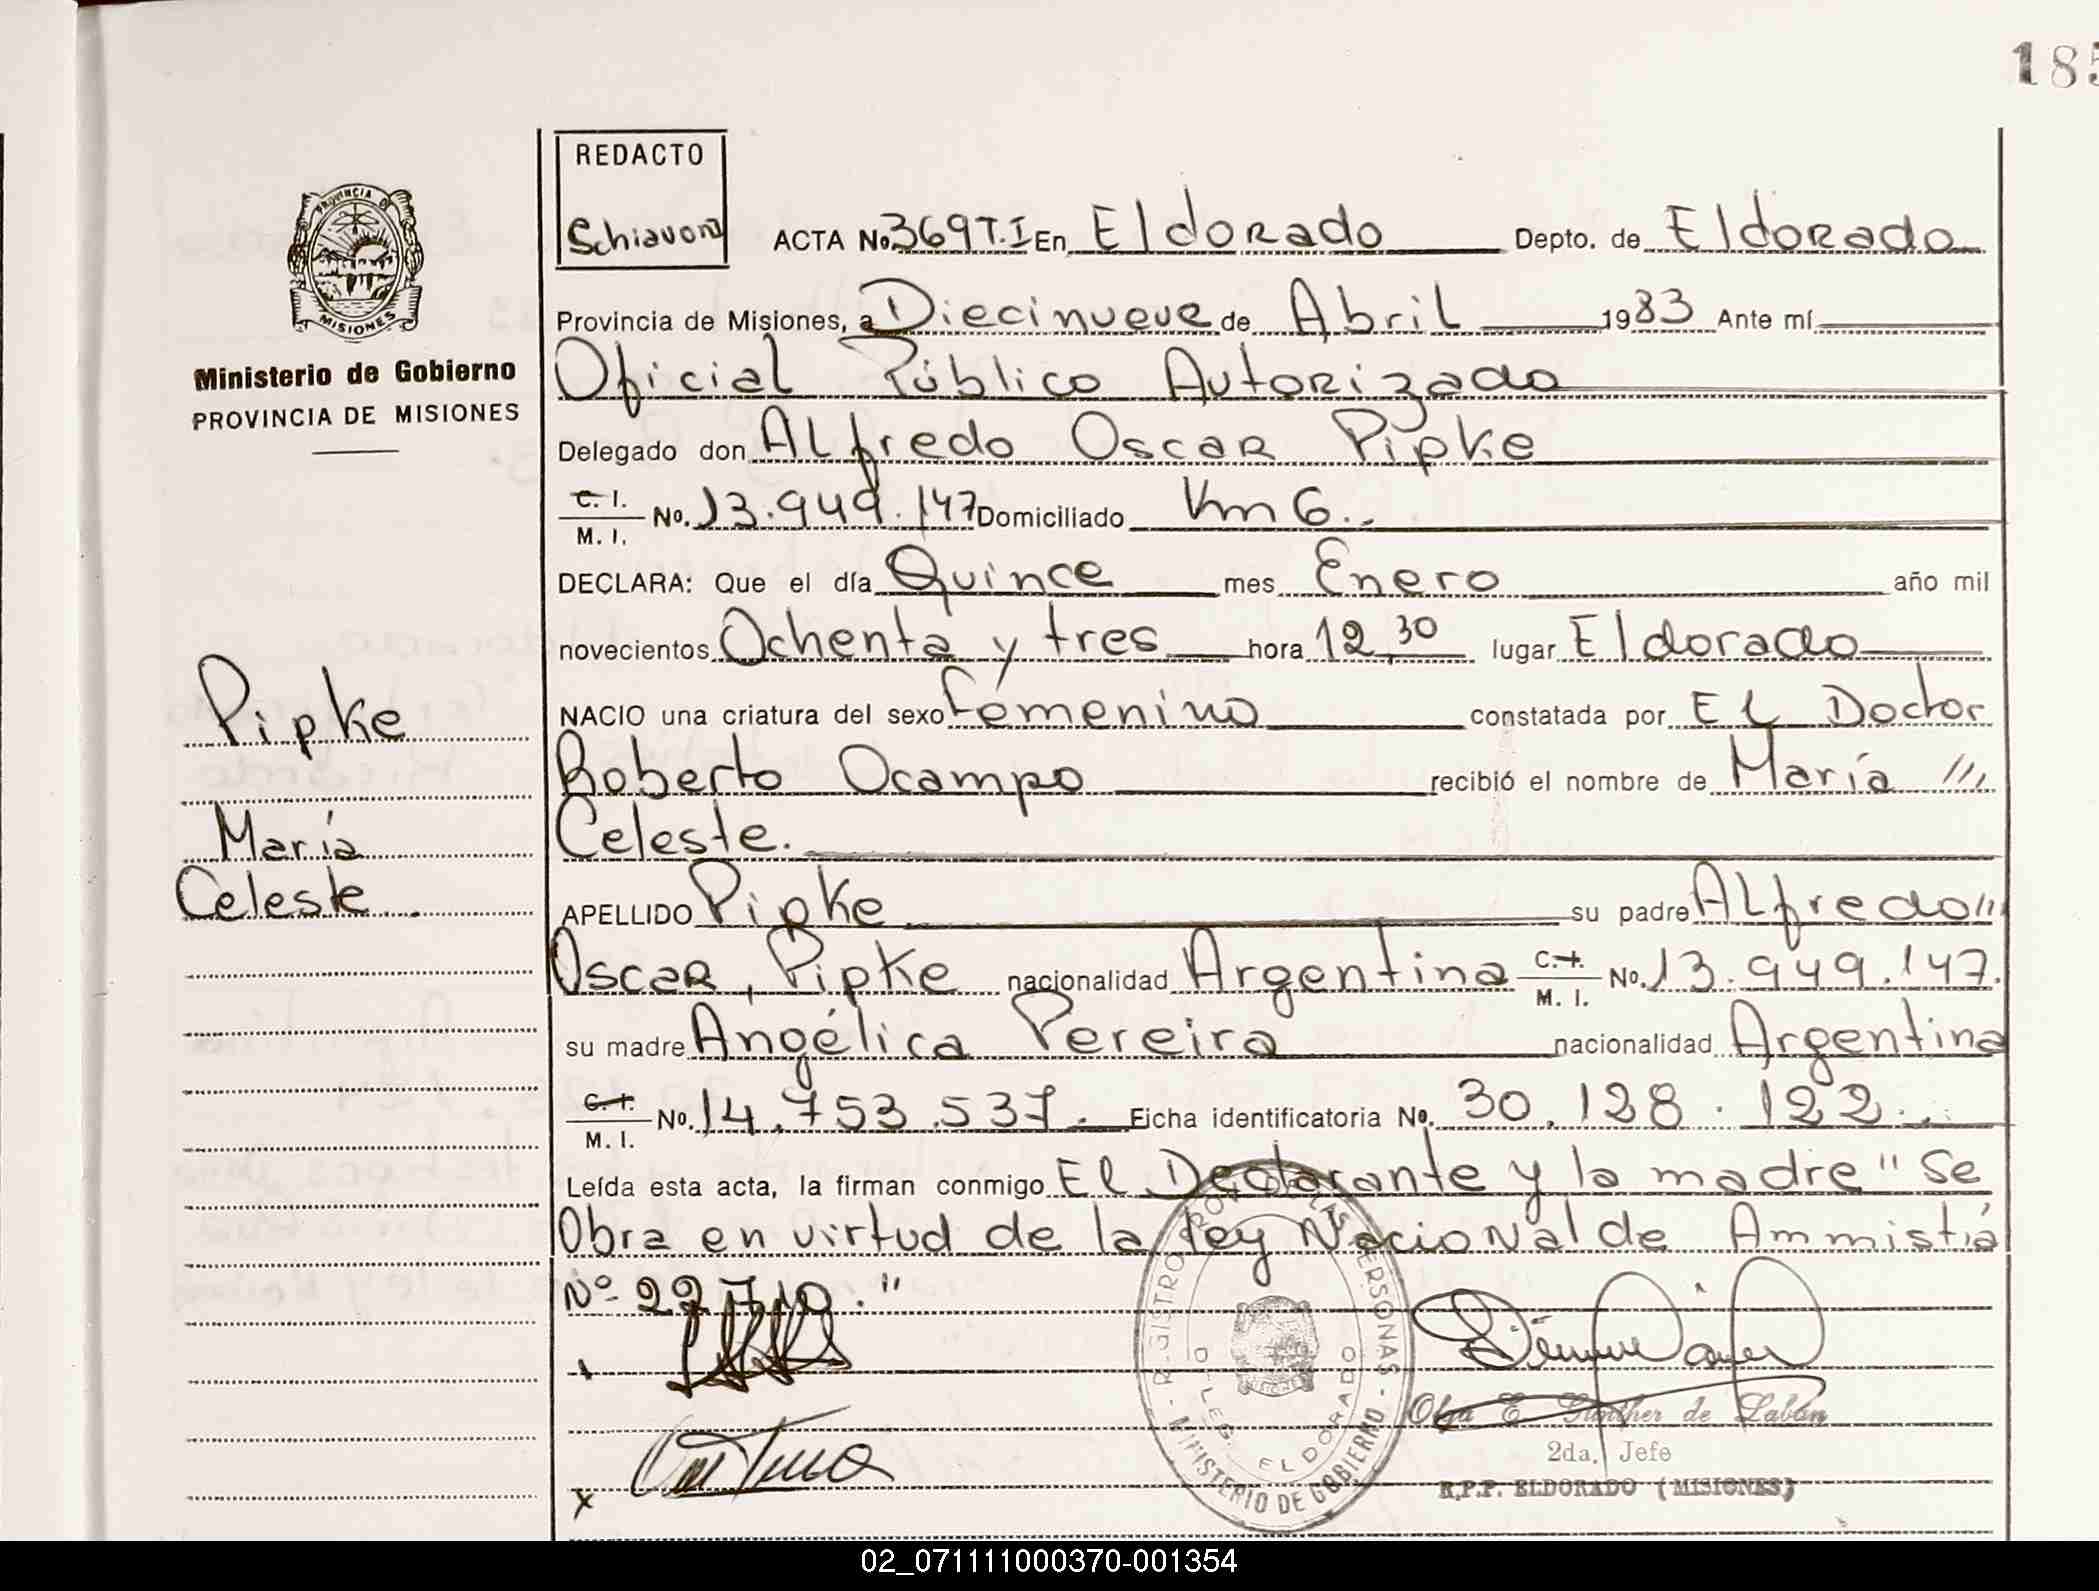 185
REDACTO
Schiavoni
ACTA No. 369 T.I En Eldorado Depto. de Eldorado
Provincia de Misiones, a Diecinueve de Abril 1983 Ante mí
Oficial Público Autorizado
Delegado don Alfredo Oscar Pipke
C. I. / M. I. No. 13.949.147 Domiciliado Km 6.
DECLARA: Que el día Quince mes Enero año mil
novecientos Ochenta y tres hora 12,30 lugar Eldorado
NACIO una criatura del sexo Femenino constatada por El Doctor
Roberto Ocampo recibió el nombre de María ///
Celeste.
APELLIDO Pipke su padre Alfredo ///
Oscar, Pipke nacionalidad Argentina C. I. / M. I. No. 13.949.147.
su madre Angélica Pereira nacionalidad Argentina
C. I. / M. I. No. 14.753.537. Ficha identificatoria No. 30.128.122.
Leída esta acta, la firman conmigo El Declarante y la madre "Se
Obra en virtud de la Ley Nacional de Ammistiá
Nº 22710."
PROVINCIA DE
MISIONES
Ministerio de Gobierno
PROVINCIA DE MISIONES
Pipke
María
Celeste
REGISTRO PROV. DE LAS PERSONAS - MINISTERIO DE GOBIERNO -
DELEG. ELDORADO
MISIONES
Olga E. Günther de Labán
2da. Jefe
R.P.P. ELDORADO (MISIONES)
x
02_071111000370-001354